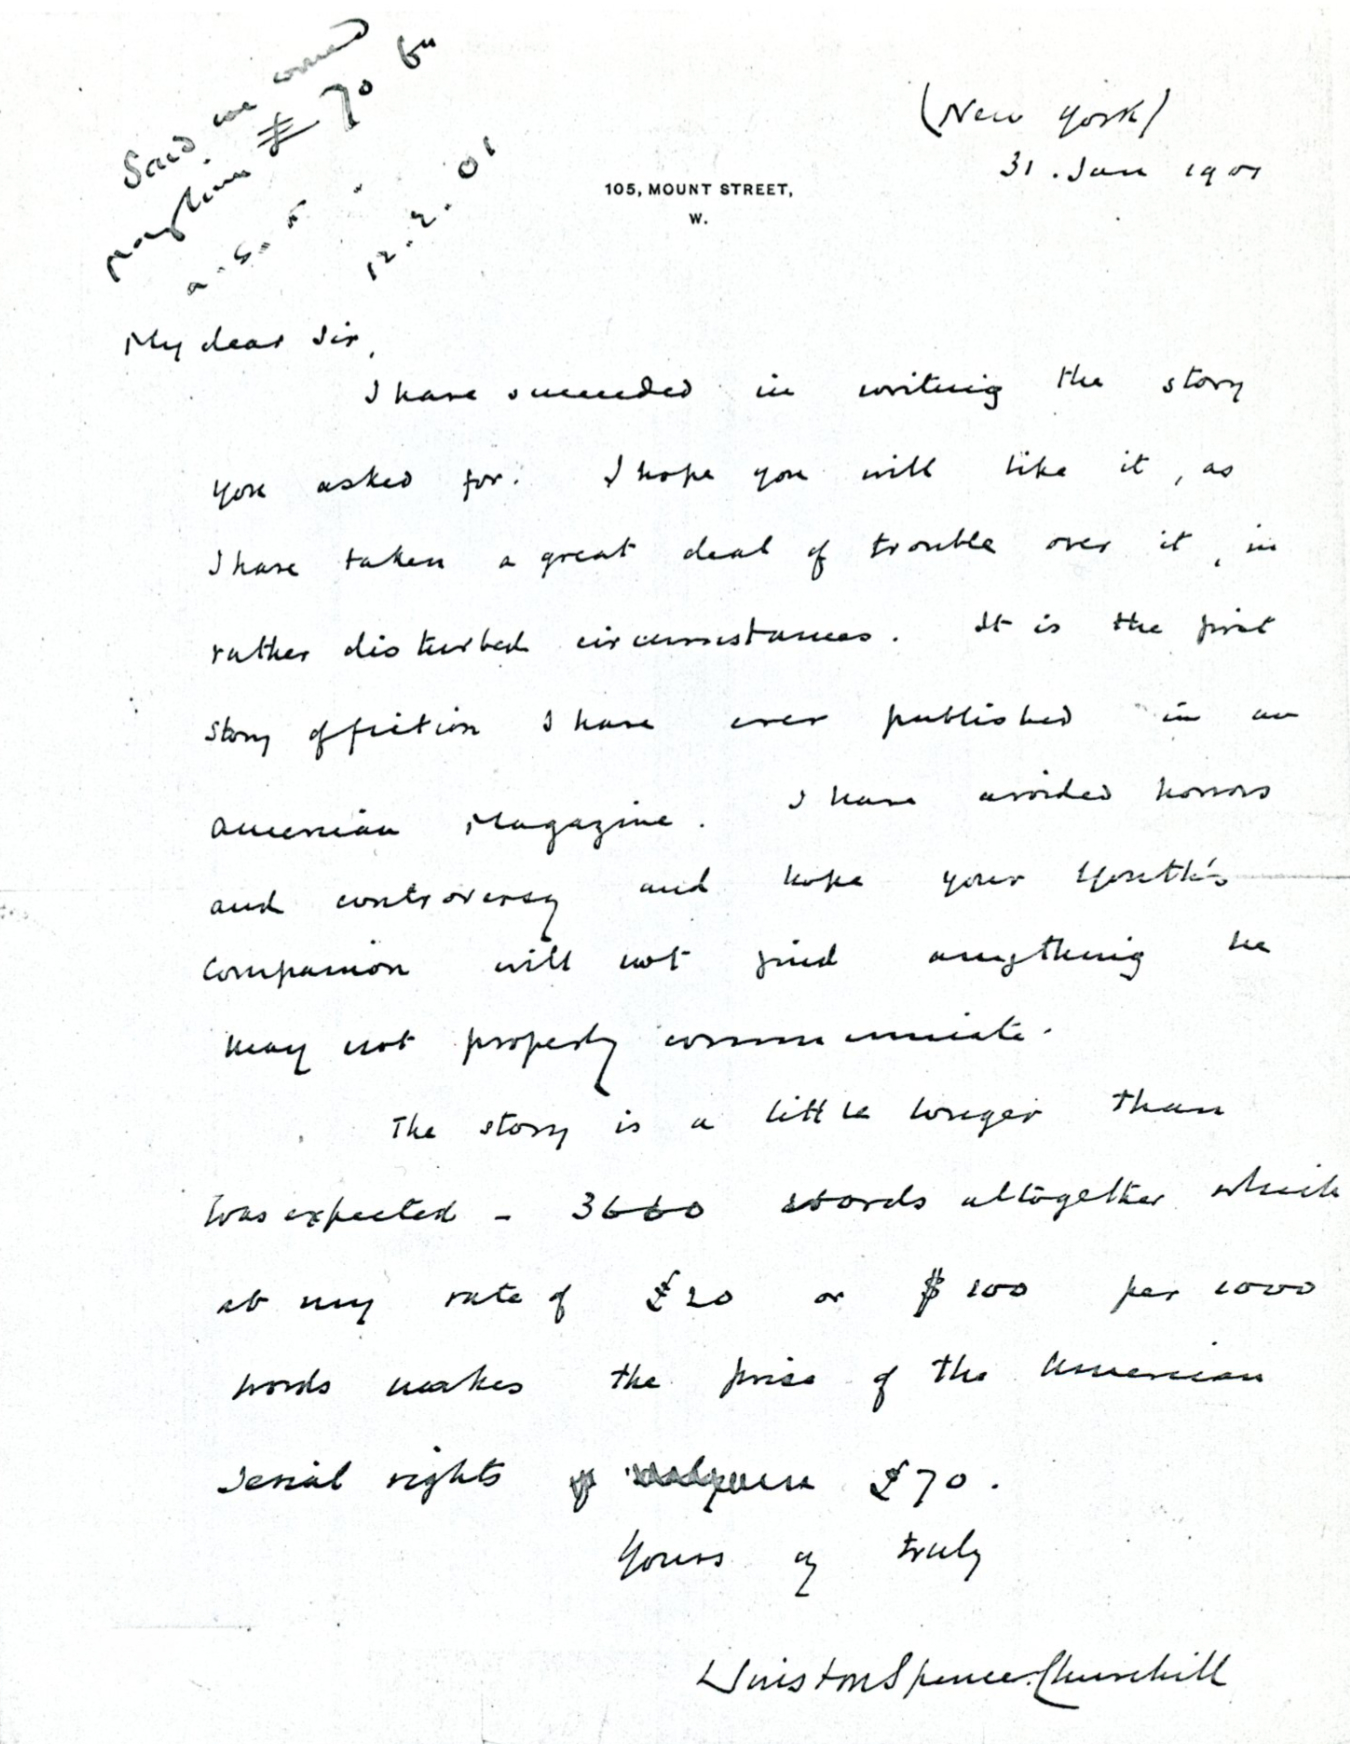 Said we would
pay him £70 for
a. S. F.
12.2.01
(New York)
31. Jan 1901
105, MOUNT STREET,
W.
My dear Sir,
I have succeeded in writing the story
you asked for. I hope you will like it, as
I have taken a great deal of trouble over it, in
rather disturbed circumstances. It is the first
story of fiction I have ever published in an
American Magazine. I have avoided horrors
and controversy and hope your Youth's
Companion will not find anything he
may not properly communicate.
The story is a little longer than
was expected - 3660 words altogether which
at my rate of £20 or $100 per 1000
words makes the price of the American
serial rights £70.
Yours vy truly
Winston Spencer Churchill